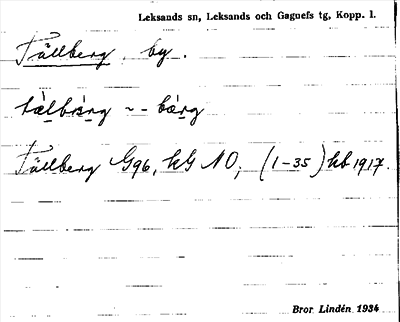 Leksands sn, Leksands och Gagnefs tg, Kopp. l.
Tällberg, by.
tälbärg ~ - bärg
Tällberg G96, kG NO, (1-35) hb 1917.
Bror Lindén 1934